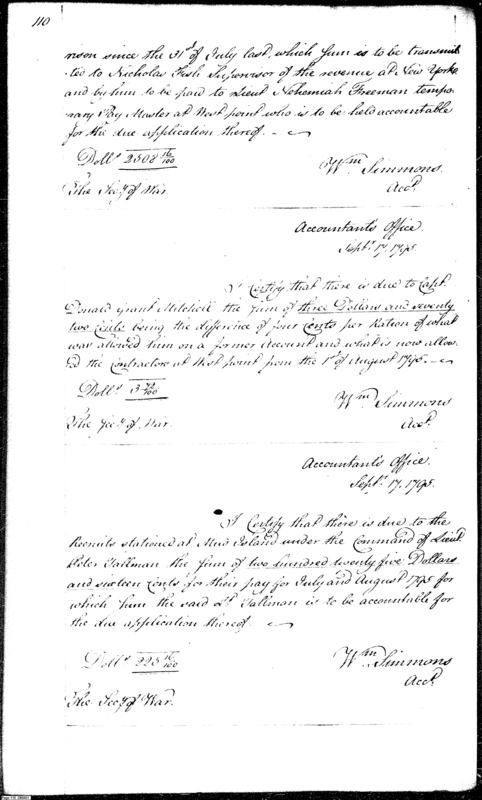 110
rison since the 31st of July last, which sum is to be transmit
ted to Nicholas Fish Supervisor of the revenue at New York,
and by him to be paid to Lieut Nehemiah Freeman tempo
rary Pay Master at West point who is to be held accountable
for the due application thereof.
Dolls 2502 16/100
Wm Simmons
Acct.
The Secy of War.
Accountant's Office.
Septr. 17. 1795.
I Certify that there is due to Capt.
Donald Grant Mitchell the sum of three Dollars and seventy
two Cents being the difference of four Cents per Ration of what
was allowed him on a former Account and what is now allow
ed the Contractors at West point from the 1st of August 1795.
Dolls 3 72/100
Wm Simmons
Acct.
The Secy of War.
Accountant's Office.
Septr. 17. 1795.
I Certify that there is due to the
Recruits stationed at Mud Island under the Command of Lieut
Peter Tallman the sum of two hundred twenty five Dollars
and sixteen Cents for their pay for July and August 1795 for
which sum the said Lt Tallman is to be accountable for
the due application thereof.
Dolls 225 16/100
Wm Simmons
Acct.
The Secy of War.